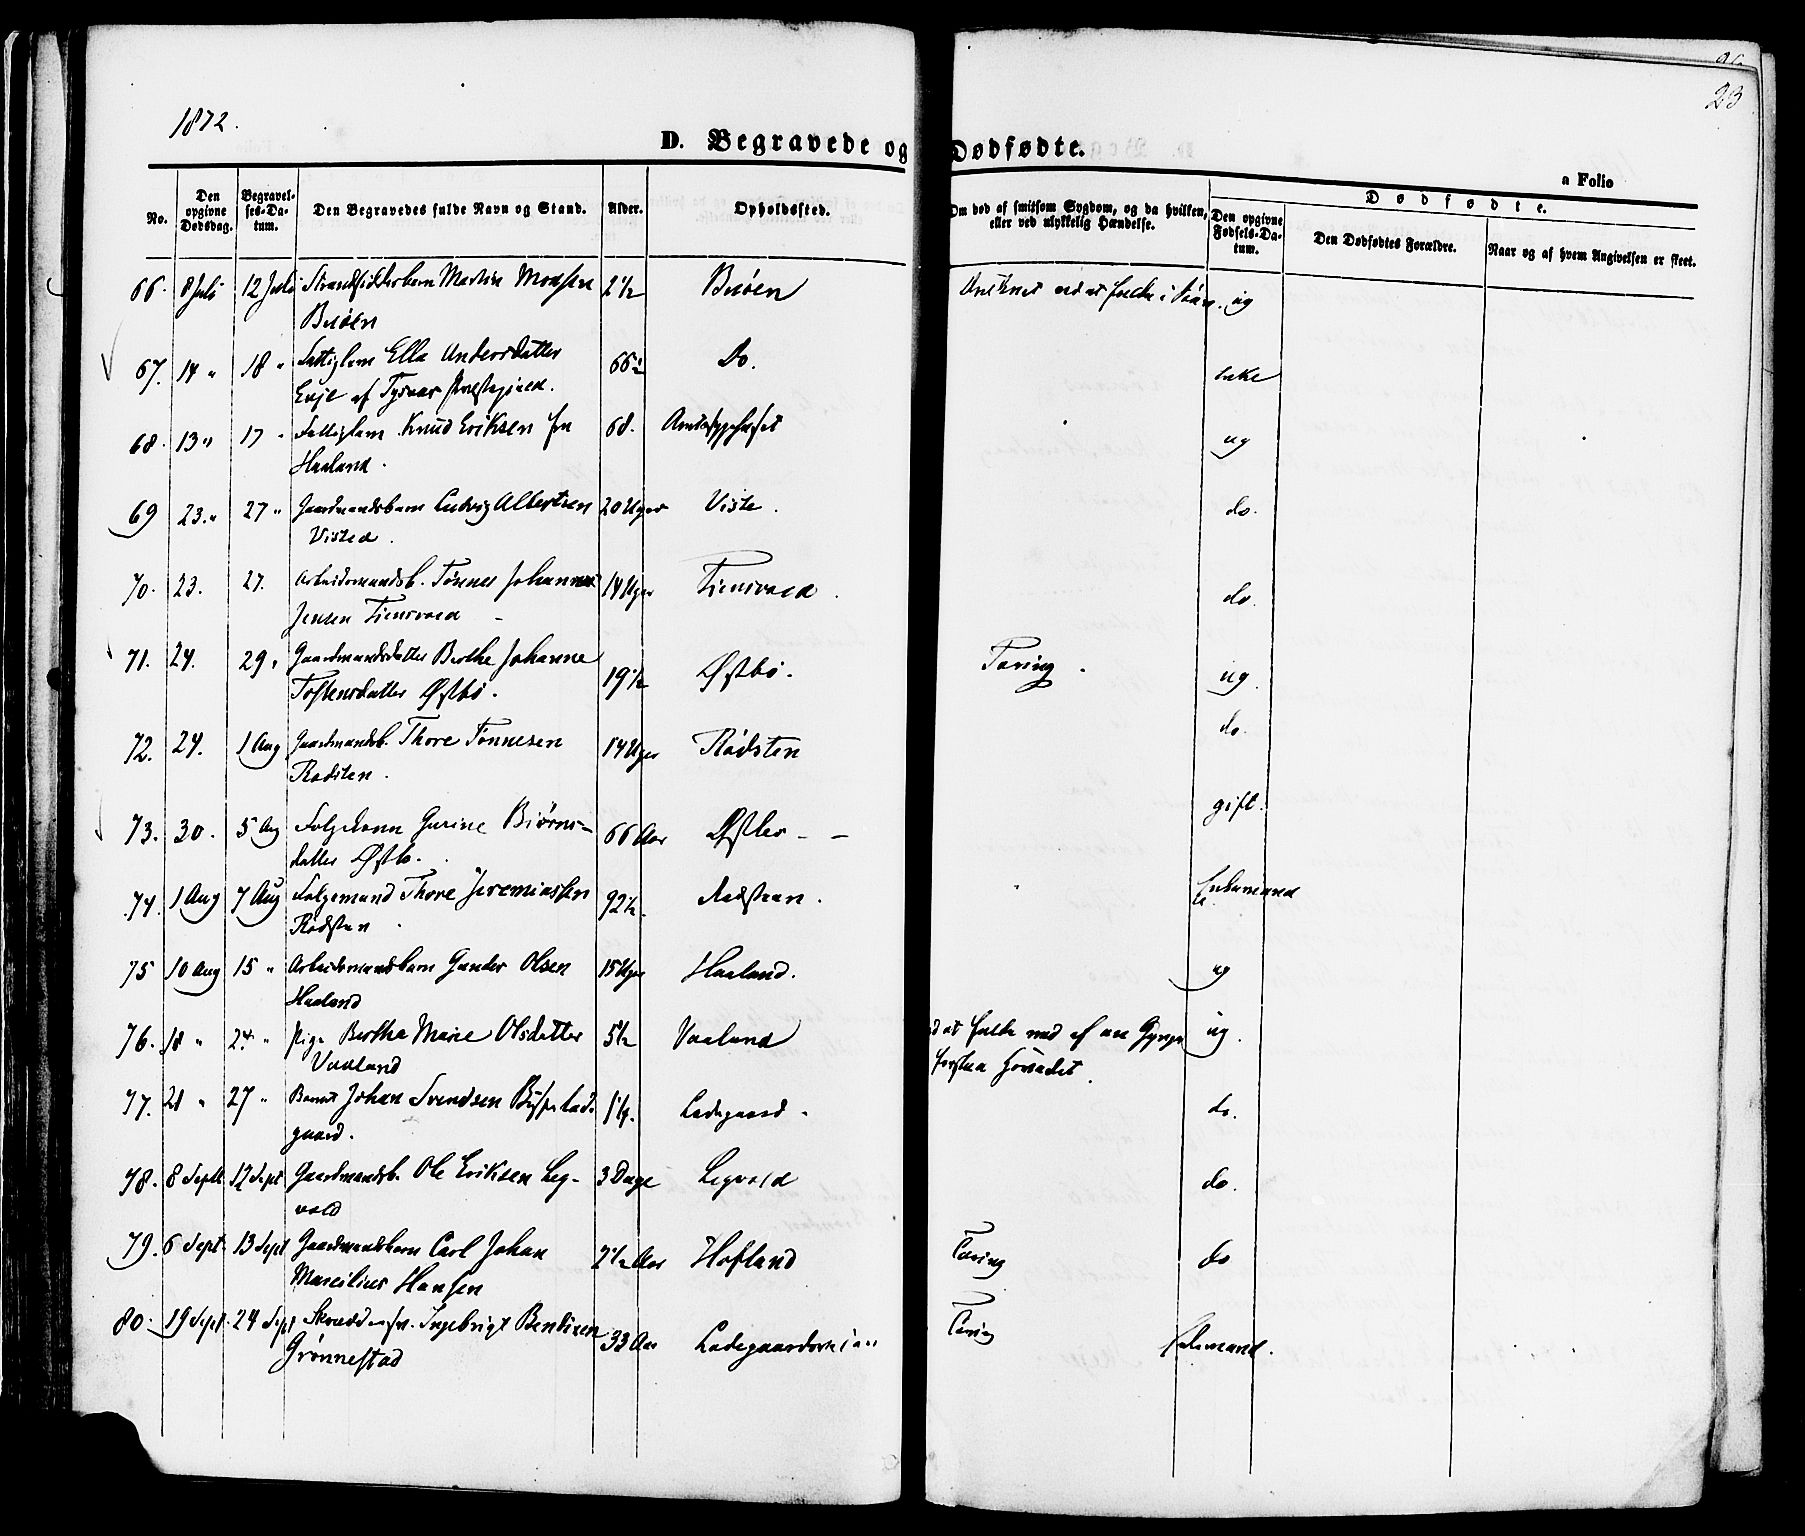 1872.
23
D. Begravede og Dødfødte.
a Folio
No.
Den opgivne Dødsdag.
Begravelses-Datum.
Den Begravedes fulde Navn og Stand.
Alder.
Opholdssted.
Om død af smitsom Sygdom, og da hvilken, eller ved ulykkelig Hændelse.
Dødfødte.
Den opgivne Fødsels-Datum.
Den Dødfødtes Forældre.
Naar og af hvem Angivelsen er skeet.
66. 8 Juli 12 Juli Strandsidderbarn Martin Monsen 2½ Buøen ved at falde i ug
Buøen
67. 14 " 18 " Fattiglem Ella Andersdatter 66½ Do. enke
Evje af Tysvær Præstegjeld.
68. 13 " 17 " Fattiglem Knud Eriksen fra 68. Amtssygehuset ug
Haaland.
69 23. " 27 " Gaardmandsbarn Ludvig Albertsen 20 Uger Viste. do.
Visted.
70. 23. 27. Arbeidsmandsb. Tønnes Johannes 14 Uger Tiensvold. do.
Jensen Tiensvold
71. 24. 29 " Gaardmandsdatter Berthe Johanne 19½ Østbö. Tæring. ug.
Tostensdatter Østbö.
72. 24. 1 Aug Gaardmandsb. Thore Tönnesen 14 Uger Rödsten do.
Rødsten.
73. 30. 5 Aug Folgekone Gurine Biörns- 66 Aar Østbø - - gift.
datter Østbø.
74. 1 Aug 7 Aug Folgemand Thore Jeremiassen 92½. Rødsteen. Enkemand
Rødsten.
75 10 Aug 15 " Arbeidsmandsbarn Gunder Olsen 15 Uger Haaland. ug
Haaland
76. 18 " 24 " Pige Berthe Marie Olsdatter 5½ Vaaland ved at falde ned af en ug.
Vaaland
77. 21 " 27 " Barnet Johan Svendsen Lade- Ladegaard. do.
gaard.
78. 8 Septb 12 Sept Gaardmandsb. Ole Eriksen Leg- 3 Dage Legvold do.
vold
79. 6 Sept 13 Sept Gaardmandsbarn Carl Johan 2½ Aar Hofland Tæring do
Marcilius Hansen
80. 19 Sept. 24 Sept Ingebrigt Bentsen 33 Aar Tæring Enkemand.
Grønnestad